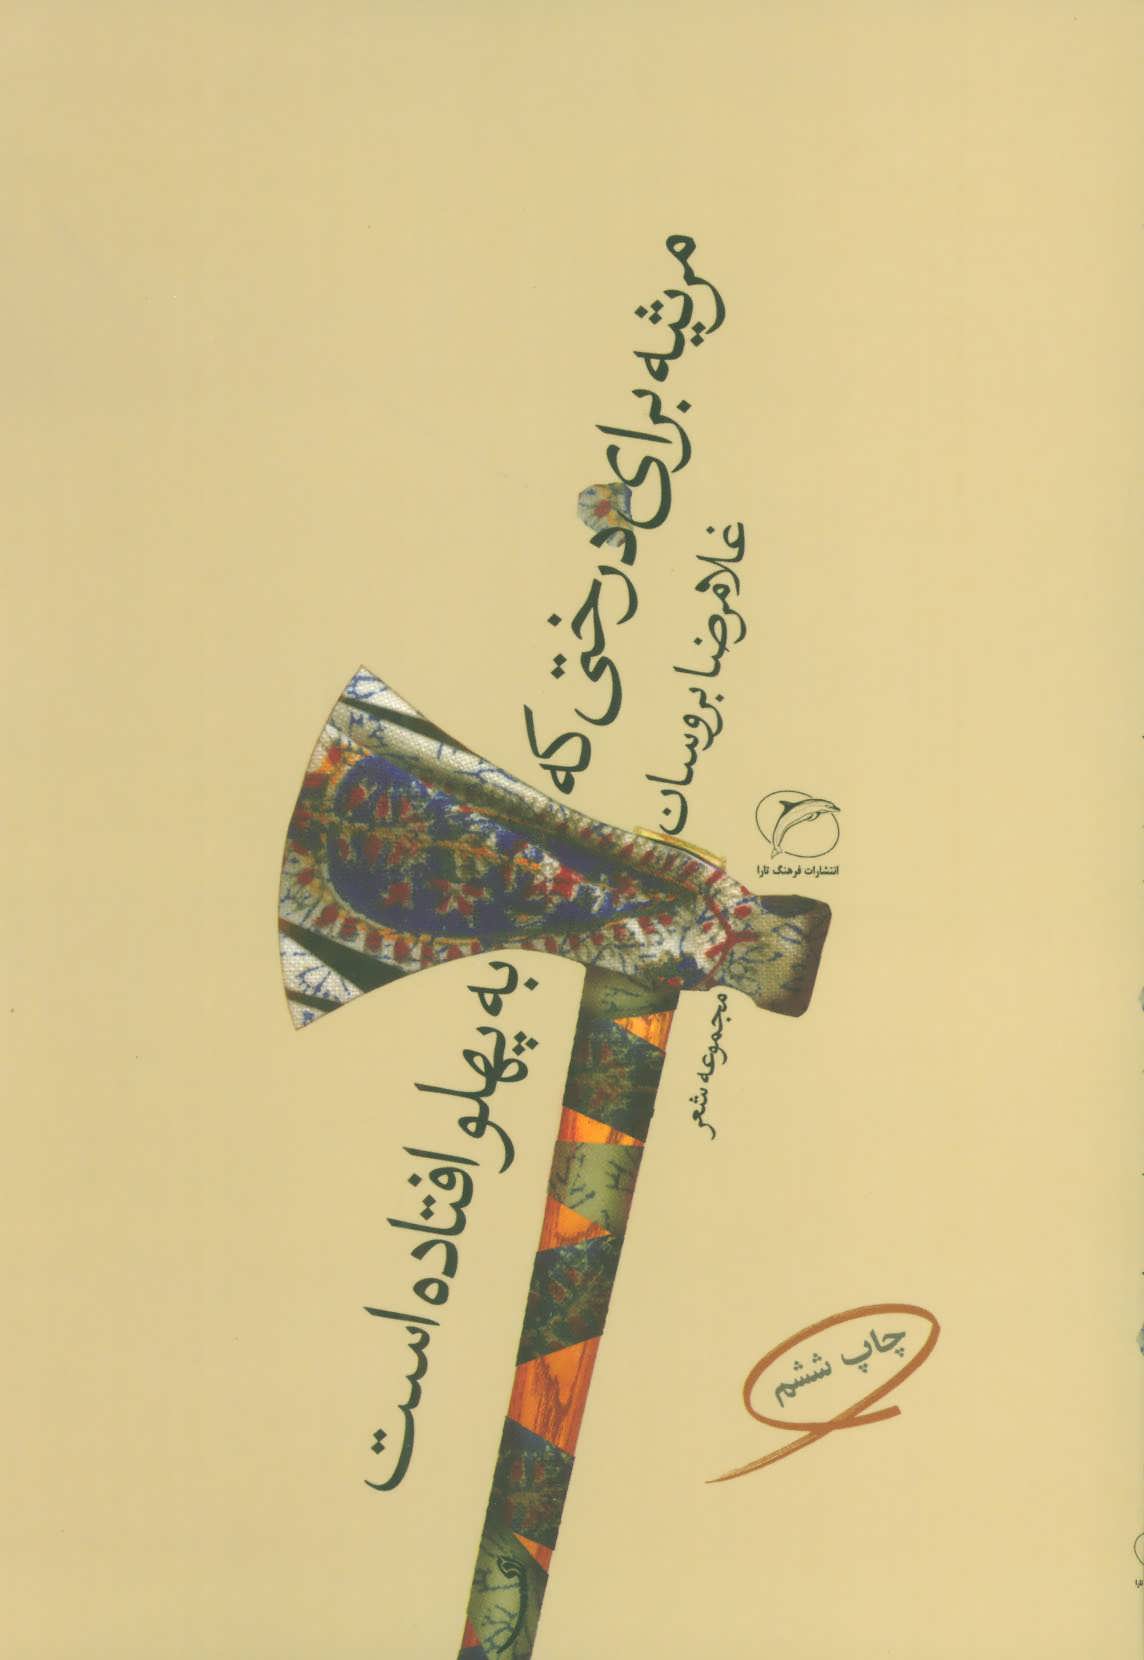 مرثیه برای درختی که
به پهلو افتاده است
غلامرضا بروسان
انتشارات فرهنگ تارا
مجموعه شعر
چاپ ششم